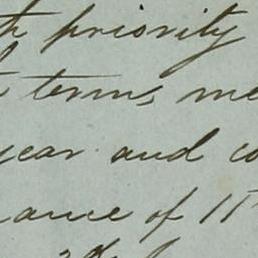 th priority
terms, me
year and co
ance of 11th